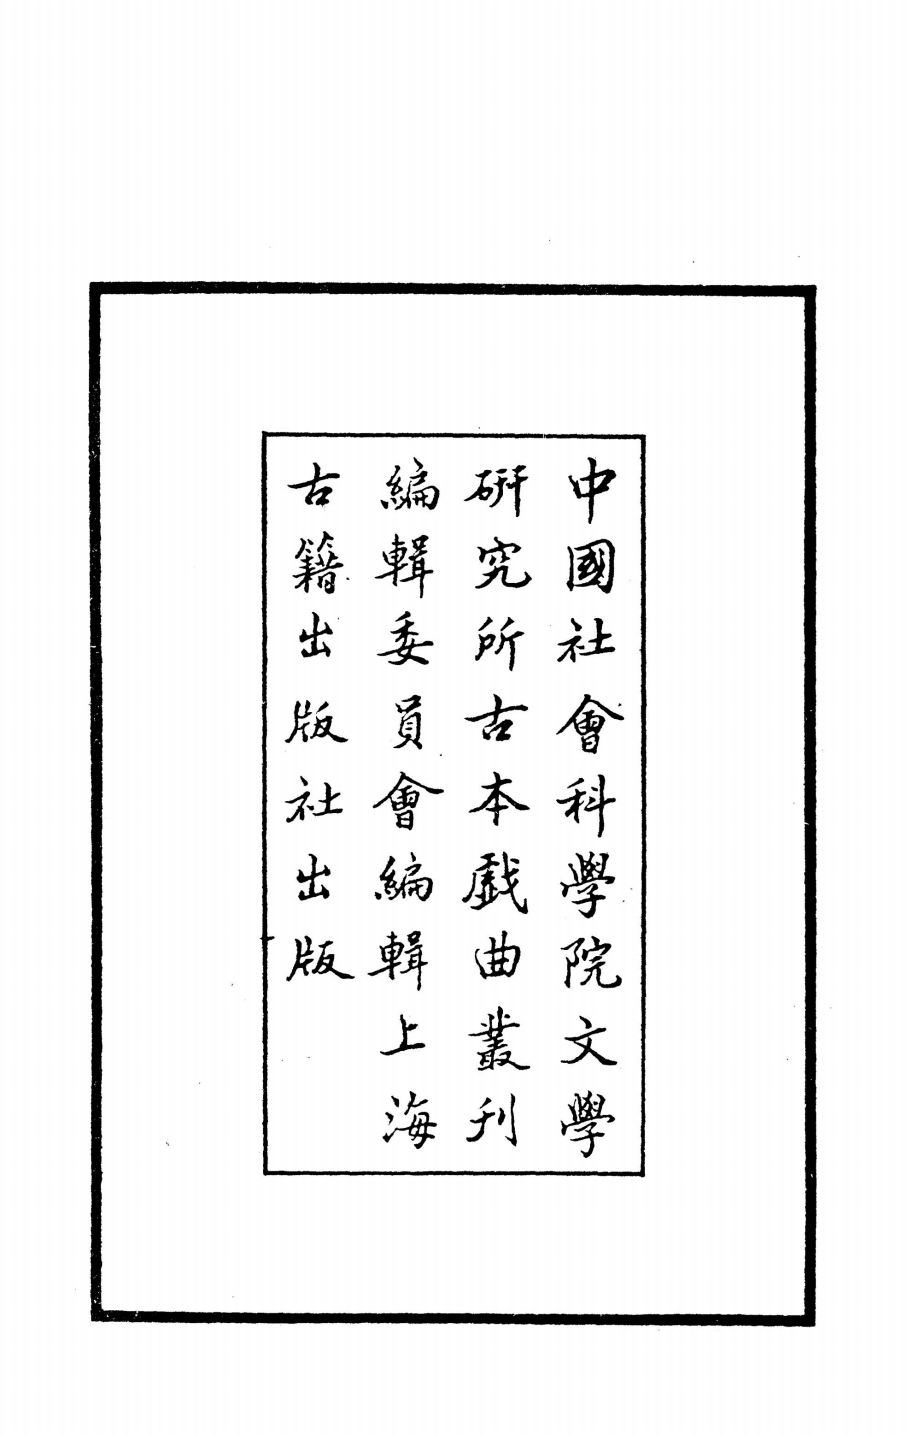 中國社會科學院文學
研究所古本戲曲叢刊
編輯委員會編輯上海
古籍出版社出版